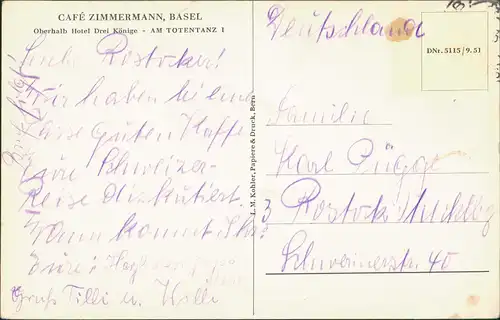 CAFÉ ZIMMERMANN, BASEL
Oberhalb Hotel Drei Könige - AM TOTENTANZ 1
Rostocker!
Wir haben bei einer
Tasse guten Kaffe
Eure Schweizer-
Reise diskutiert.
Wann kommt Ihr?
Gruß Tilli u. Willi
L. M. Kohler, Papiere & Druck, Bern
Deutschland
DNr. 5115/9.51
Familie
Karl
3 Rostock
Schwerinerstr. 40